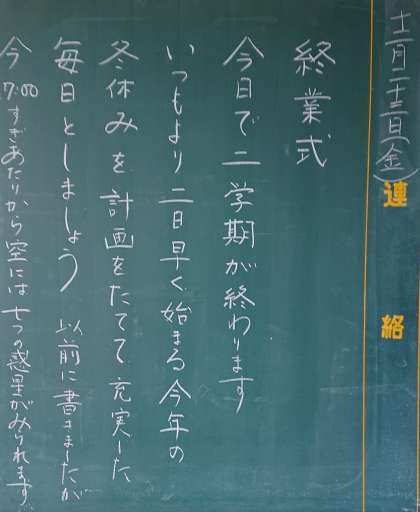 十二月二十三日(金)
連絡
終業式
今日で二学期が終わります
いつもより二日早く始まる今年の
冬休みを計画をたてて充実した
毎日としましょう 以前に書きましたが
今 17:00すぎあたりから空には七つの惑星がみられます。